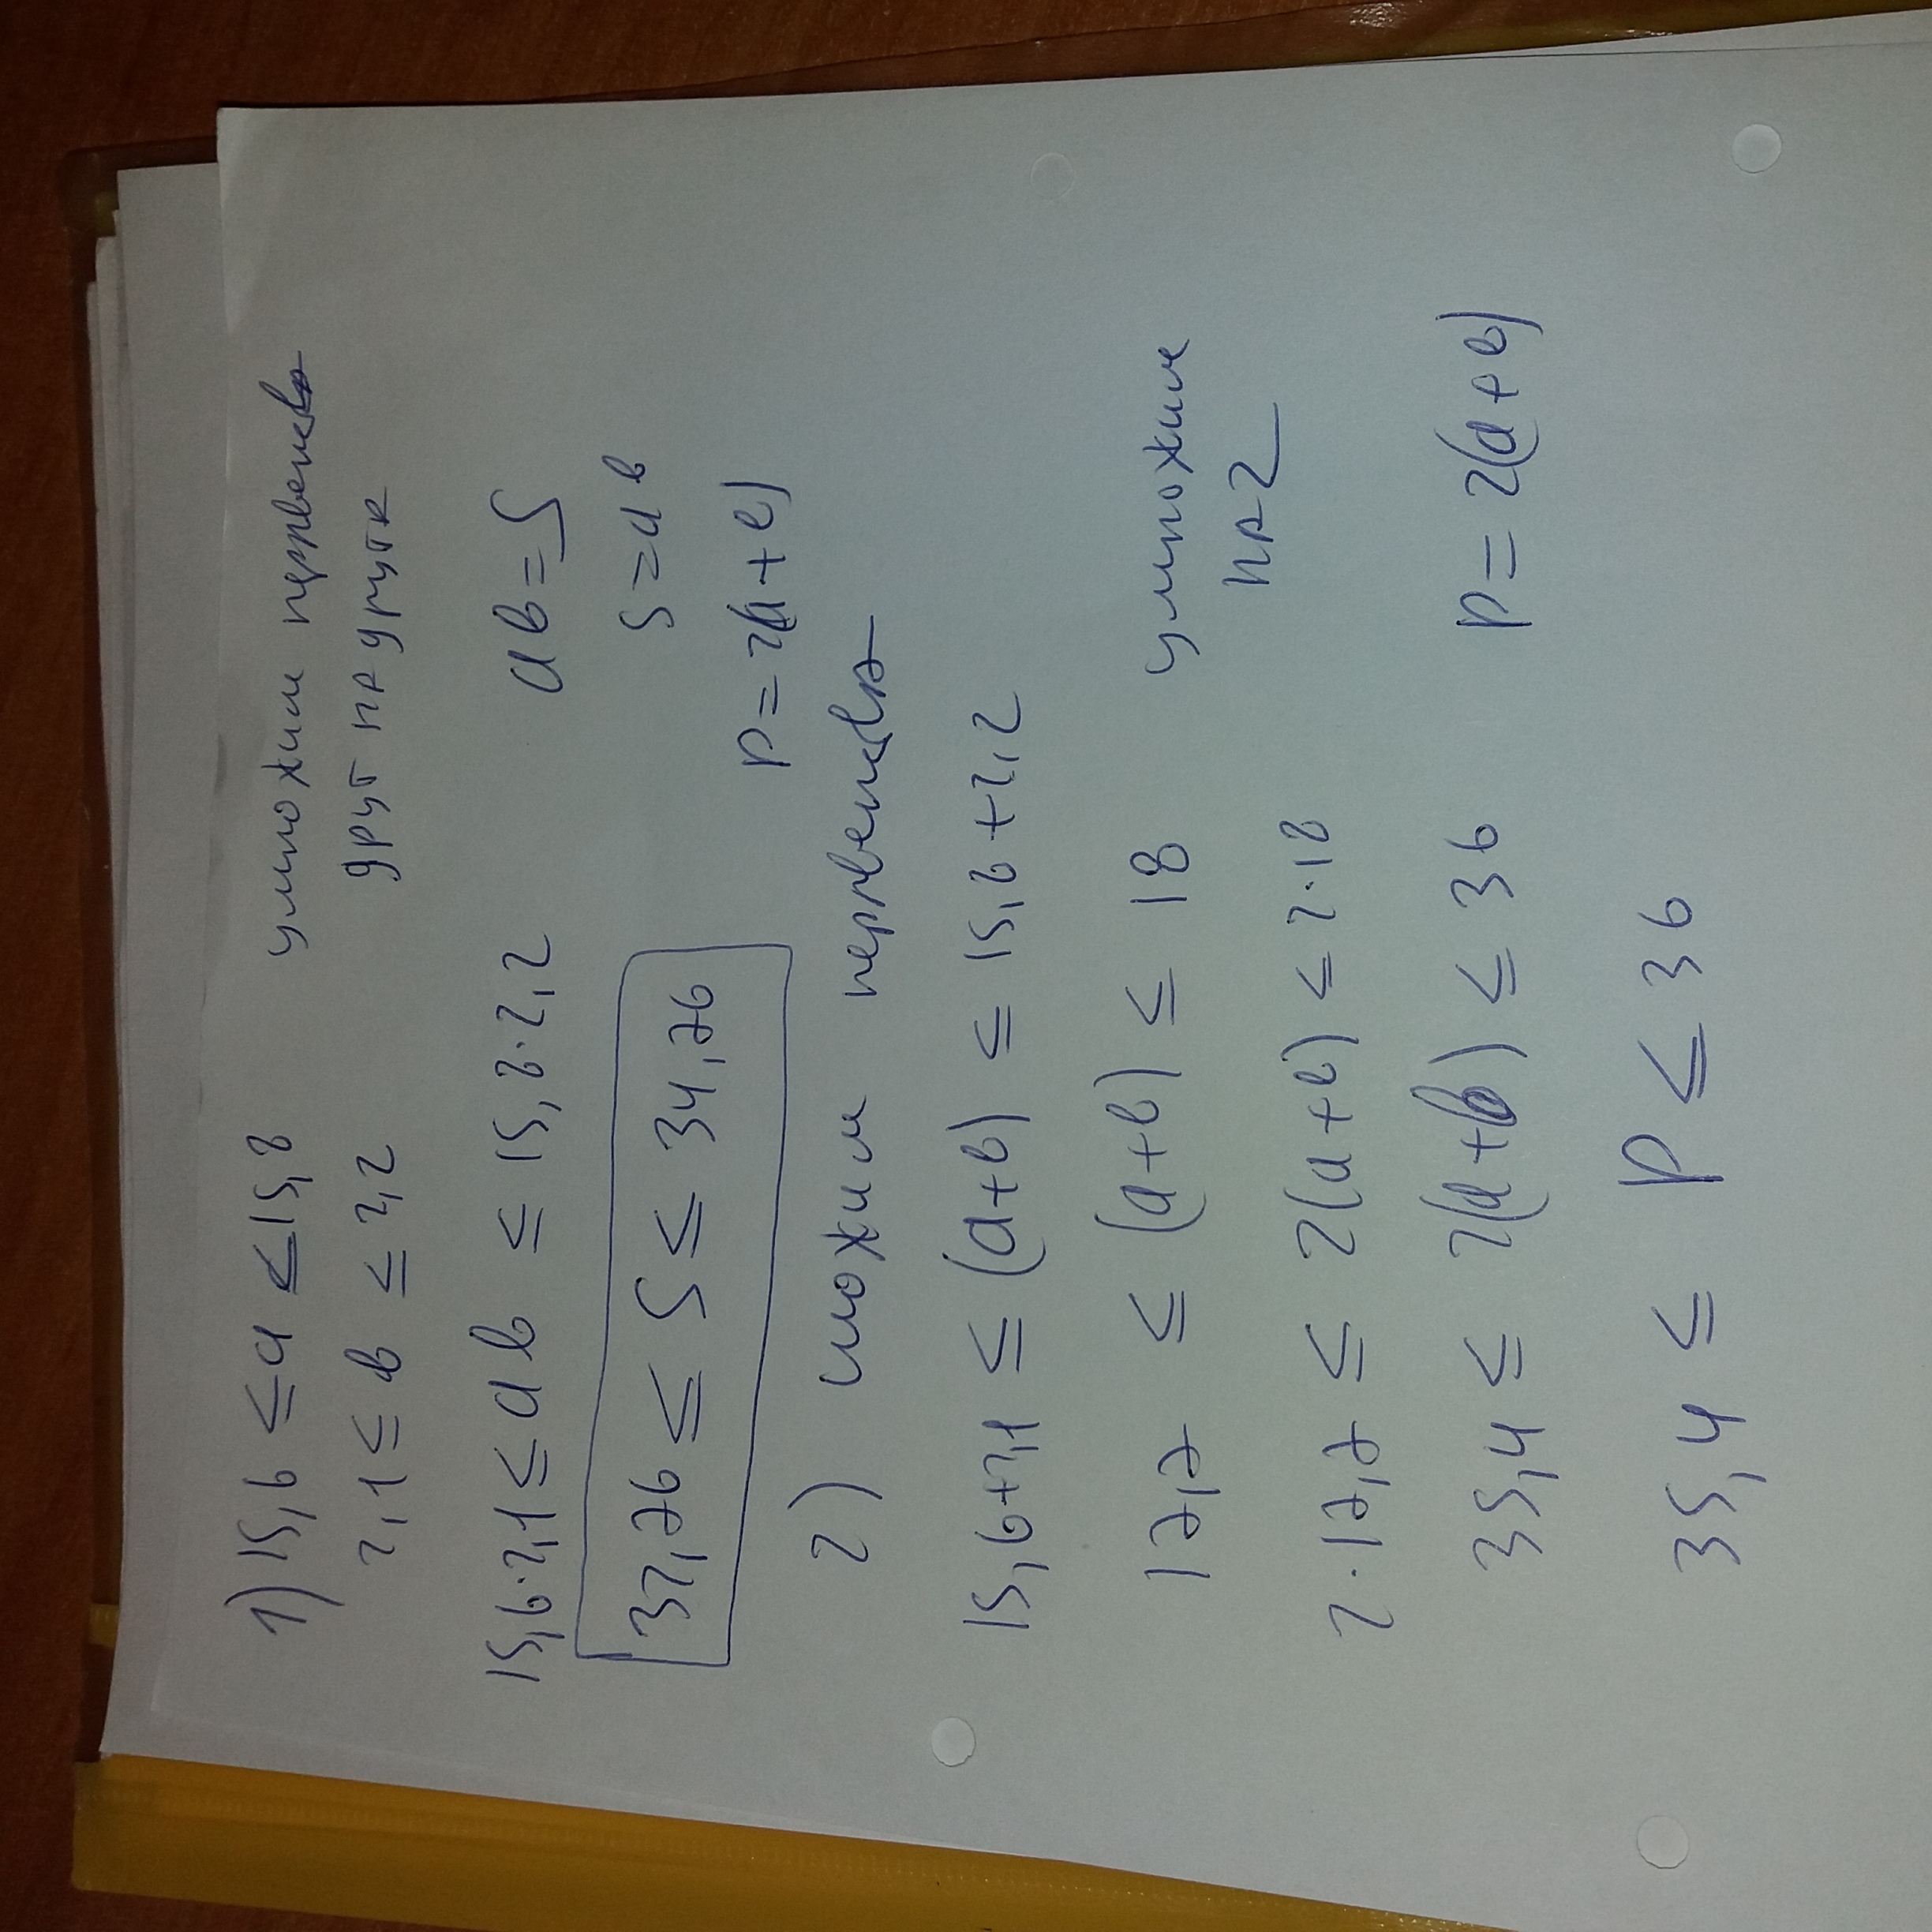 1) 15,6 ≤ a ≤ 15,8 умножим неравенства
2,1 ≤ b ≤ 2,2 друг на друга
15,6·2,1 ≤ ab ≤ 15,8·2,2 ab = S
32,76 ≤ S ≤ 34,76 S = ab
P = 2(a+b)
2) сложим неравенства
15,6+2,1 ≤ (a+b) ≤ 15,8+2,2
17,7 ≤ (a+b) ≤ 18 умножим
на 2
2·17,7 ≤ 2(a+b) ≤ 2·18
35,4 ≤ 2(a+b) ≤ 36 P = 2(a+b)
35,4 ≤ P ≤ 36